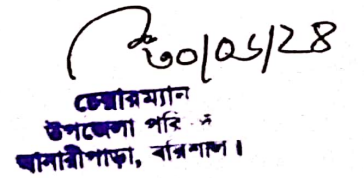 ৩০/০১/২৪
চেয়ারম্যান
উপজেলা পরি
বানারীপাড়া, বরিশাল।